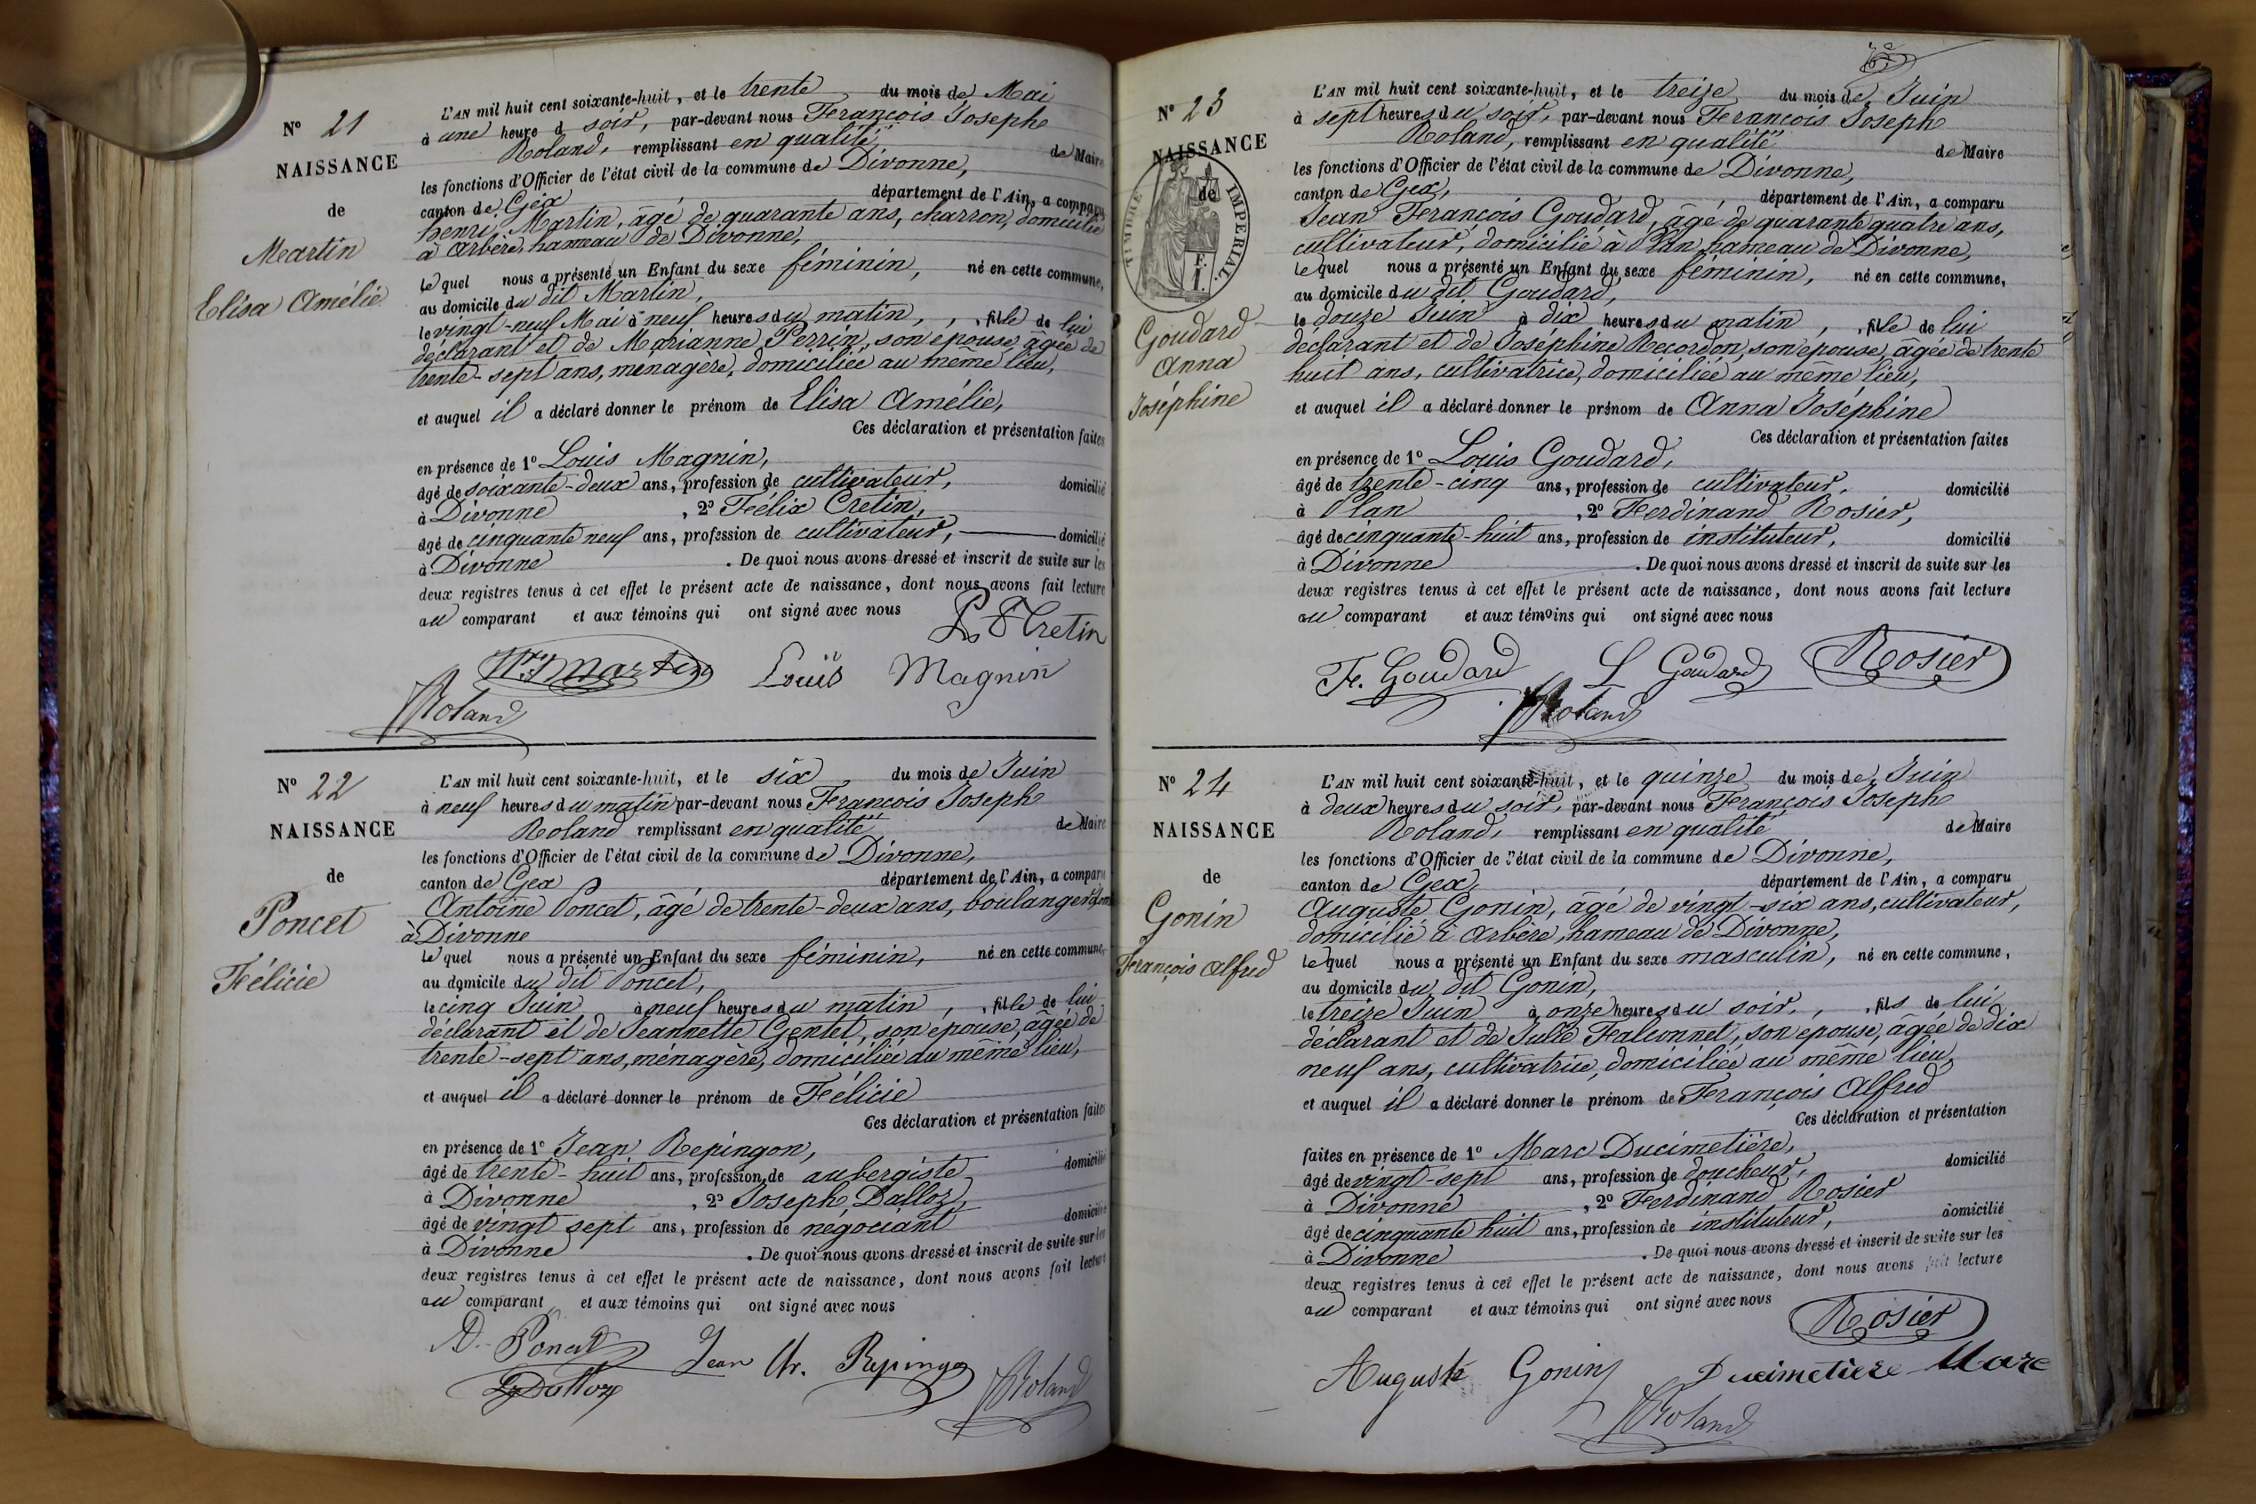 N° 21
NAISSANCE
de
Martin
Elisa Amélie
L'AN mil huit cent soixante-huit, et le trente du mois de Mai
à une heure d soir, par-devant nous François Joseph
Roland, remplissant en qualité de Maire
les fonctions d'Officier de l'état civil de la commune de Divonne,
canton de Gex département de l'Ain, a comparu
henri Martin, âgé de quarante ans, charron, domicilié
à Arbère, hameau de Divonne,
le quel nous a présenté un Enfant du sexe féminin, né en cette commune,
au domicile du dit Martin,
le vingt-neuf Mai à neuf heures du matin, , fille de lui
déclarant et de Marianne Perrin, son épouse, âgée de
trente-sept ans, ménagère, domiciliée au même lieu,
et auquel il a déclaré donner le prénom de Elisa Amélie,
Ces déclaration et présentation faites
en présence de 1° Louis Magnin,
âgé de soixante-deux ans, profession de cultivateur, domicilié
à Divonne , 2° Félix Cretin,
âgé de cinquante neuf ans, profession de cultivateur, domicilié
à Divonne . De quoi nous avons dressé et inscrit de suite sur les
deux registres tenus à cet effet le présent acte de naissance, dont nous avons fait lecture
au comparant et aux témoins qui ont signé avec nous
Cretin
Martin Louis Magnin
Roland
N° 22
NAISSANCE
de
Poncet
Félicie
L'AN mil huit cent soixante-huit, et le six du mois de Juin
à neuf heures du matin par-devant nous François Joseph
Roland remplissant en qualité de Maire
les fonctions d'Officier de l'état civil de la commune de Divonne,
canton de Gex département de l'Ain, a comparu
Antoine Poncet, âgé de trente-deux ans, boulanger
à Divonne
le quel nous a présenté un Enfant du sexe féminin, né en cette commune,
au domicile du dit Poncet,
le cinq Juin à neuf heures du matin , , fille de lui
déclarant et de Jeannette Gentet, son épouse, âgée de
trente-sept ans, ménagère, domiciliée du même lieu,
et auquel il a déclaré donner le prénom de Félicie
Ces déclaration et présentation faites
en présence de 1° Jean Repingon,
âgé de trente-huit ans, profession de aubergiste domicilié
à Divonne , 2° Joseph Dalloz,
âgé de vingt sept ans, profession de négociant domicilié
à Divonne . De quoi nous avons dressé et inscrit de suite sur les
deux registres tenus à cet effet le présent acte de naissance, dont nous avons fait lecture
au comparant et aux témoins qui ont signé avec nous
A. Poncet Jean Repingon
Dalloz Roland
N° 23
NAISSANCE
de
TIMBRE IMPERIAL
Goudard
Anna
Joséphine
L'AN mil huit cent soixante-huit, et le treize du mois de Juin
à sept heures du soir, par-devant nous François Joseph
Roland, remplissant en qualité de Maire
les fonctions d'Officier de l'état civil de la commune de Divonne,
canton de Gex, département de l'Ain, a comparu
Jean François Goudard, âgé de quarante quatre ans,
cultivateur, domicilié à Plan, hameau de Divonne,
le quel nous a présenté un Enfant du sexe féminin, né en cette commune,
au domicile du dit Goudard,
le douze Juin à dix heures du matin , , fille de lui
déclarant et de Joséphine Recordon, son épouse, âgée de trente
huit ans, cultivatrice, domiciliée au même lieu,
et auquel il a déclaré donner le prénom de Anna Joséphine
Ces déclaration et présentation faites
en présence de 1° Louis Goudard,
âgé de trente-cinq ans, profession de cultivateur, domicilié
à Plan , 2° Ferdinand Rosier,
âgé de cinquante-huit ans, profession de instituteur, domicilié
à Divonne . De quoi nous avons dressé et inscrit de suite sur les
deux registres tenus à cet effet le présent acte de naissance, dont nous avons fait lecture
au comparant et aux témoins qui ont signé avec nous
F. Goudard L Goudard Rosier
Roland
N° 24
NAISSANCE
de
Gonin
François Alfred
L'AN mil huit cent soixante-huit, et le quinze du mois de Juin
à deux heures du soir, par-devant nous François Joseph
Roland, remplissant en qualité de Maire
les fonctions d'Officier de l'état civil de la commune de Divonne,
canton de Gex département de l'Ain, a comparu
Auguste Gonin, âgé de vingt-six ans, cultivateur,
domicilié à Arbère, hameau de Divonne,
le quel nous a présenté un Enfant du sexe masculin, né en cette commune,
au domicile du dit Gonin,
le treize Juin à onze heures du soir, , fils de lui
déclarant et de Julie Falconnet, son épouse, âgée de dix
neuf ans, cultivatrice, domiciliée au même lieu,
et auquel il a déclaré donner le prénom de François Alfred
Ces déclaration et présentation
faites en présence de 1° Marc Ducimetière,
âgé de vingt-sept ans, profession de doucheur, domicilié
à Divonne , 2° Ferdinand Rosier
âgé de cinquante huit ans, profession de instituteur, domicilié
à Divonne . De quoi nous avons dressé et inscrit de suite sur les
deux registres tenus à cet effet le présent acte de naissance, dont nous avons fait lecture
au comparant et aux témoins qui ont signé avec nous
Rosier
Auguste Gonin Ducimetiere Marc
Roland